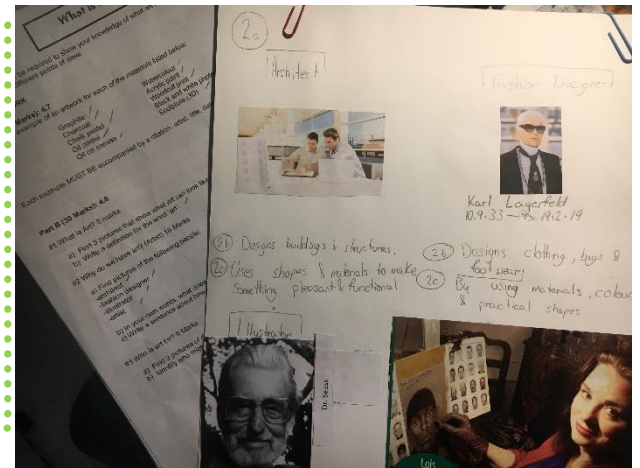 What is
be required to show your knowledge of what an
different points of view.
RK
Marks): 4.7
example of an artwork for each of the materials listed below:
Graphite
Charcoal
Chalk pastel
Oil pastel
Oil on canvas
Watercolour
Acrylic paint
Woodcut print
Black and white photo
Sculpture (3D)
Each example MUST BE accompanied by a citation: artist, title, dat
Part B (30 Marks): 4.8
#1 What is Art? 5 marks
a) Find 3 pictures that show what art can look like
b) Write a definition for the word "art"
#2 Why do we have art? (Artist) 16 Marks
a) Find pictures of the following people:
-architect
-fashion designer
-illustrator
-artist
b) In your own words, what does
c) Write a sentence about how
#3 Who is art for? 9 Marks
a) Find 3 pictures of
b) Identify who
2a
Architect
Fashion Designer
Karl Lagerfeld
10.9.33 – 19.2.19
2b Designs buildings & structures.
2c Uses shapes & materials to make
Something pleasant & functional
2b Designs clothing, bags &
footwear
2c By using materials, colour
& practical shapes
Illustrator
Dr. Seuss
Lois